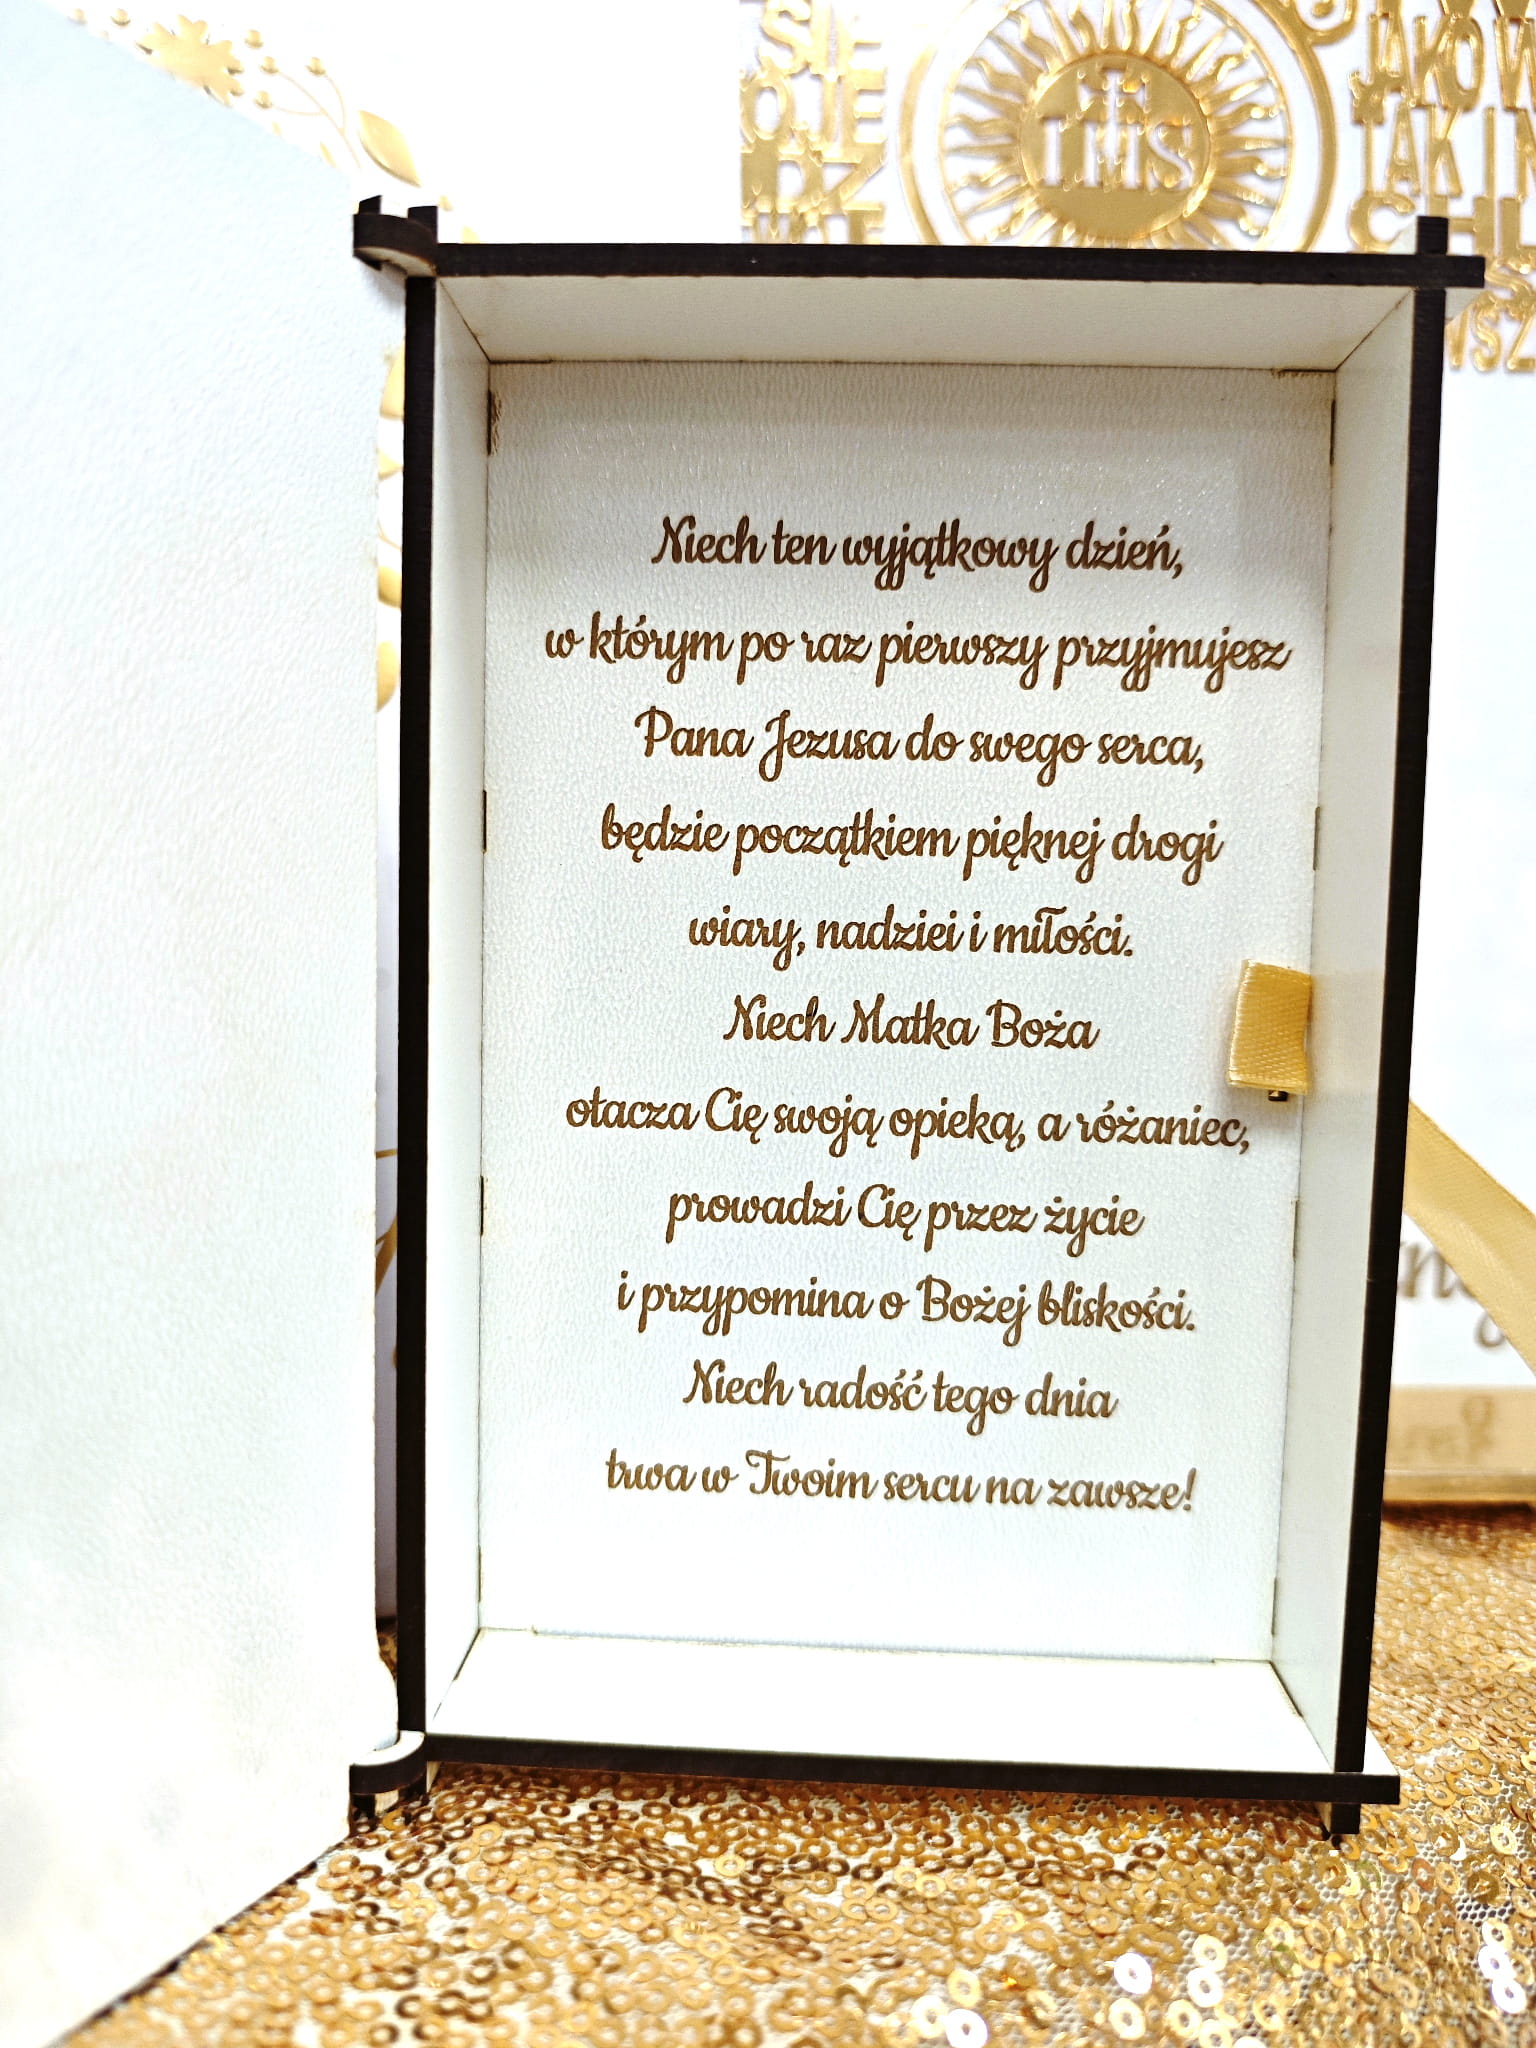 SIĘ
IHS
JAKO W
TAK I N
Niech ten wyjątkowy dzień,
w którym po raz pierwszy przyjmujesz
Pana Jezusa do swego serca,
będzie początkiem pięknej drogi
wiary, nadziei i miłości.
Niech Matka Boża
otacza Cię swoją opieką, a różaniec,
prowadzi Cię przez życie
i przypomina o Bożej bliskości.
Niech radość tego dnia
trwa w Twoim sercu na zawsze!